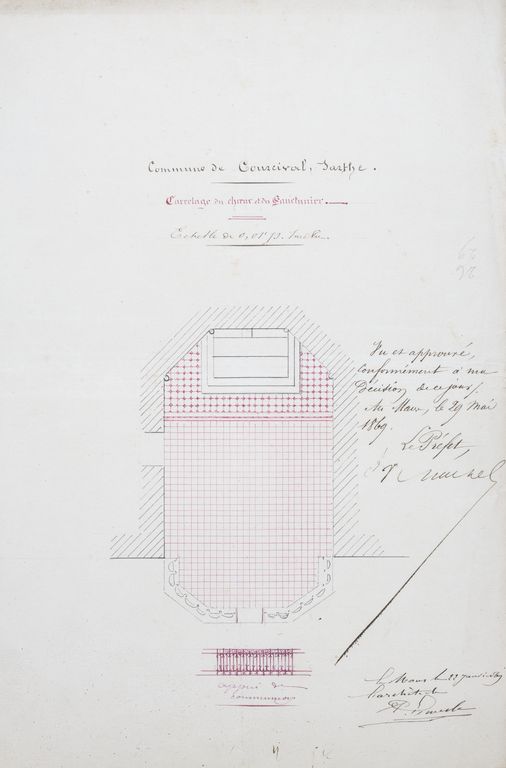 Commune de Courcival, Sarthe.
Carrelage du chœur et du Sanctuaire.
Echelle de 0,01
Vu et approuvé,
conformément à ma
Décision de ce jour,
Au Mans, le 29 Mai
1869.
Le Préfet,
appui de
communion
le Mans le 22 janvier 1869
l'architecte